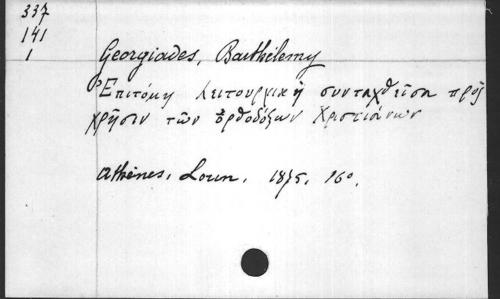 337
141
1
Georgiades, Barthélemy
Ἐπιτόμη λειτουργικὴ συνταχθεῖσα πρὸς
χρῆσιν τῶν ὀρθοδόξων Χριστιάνων
Athènes, 1875. 16°.